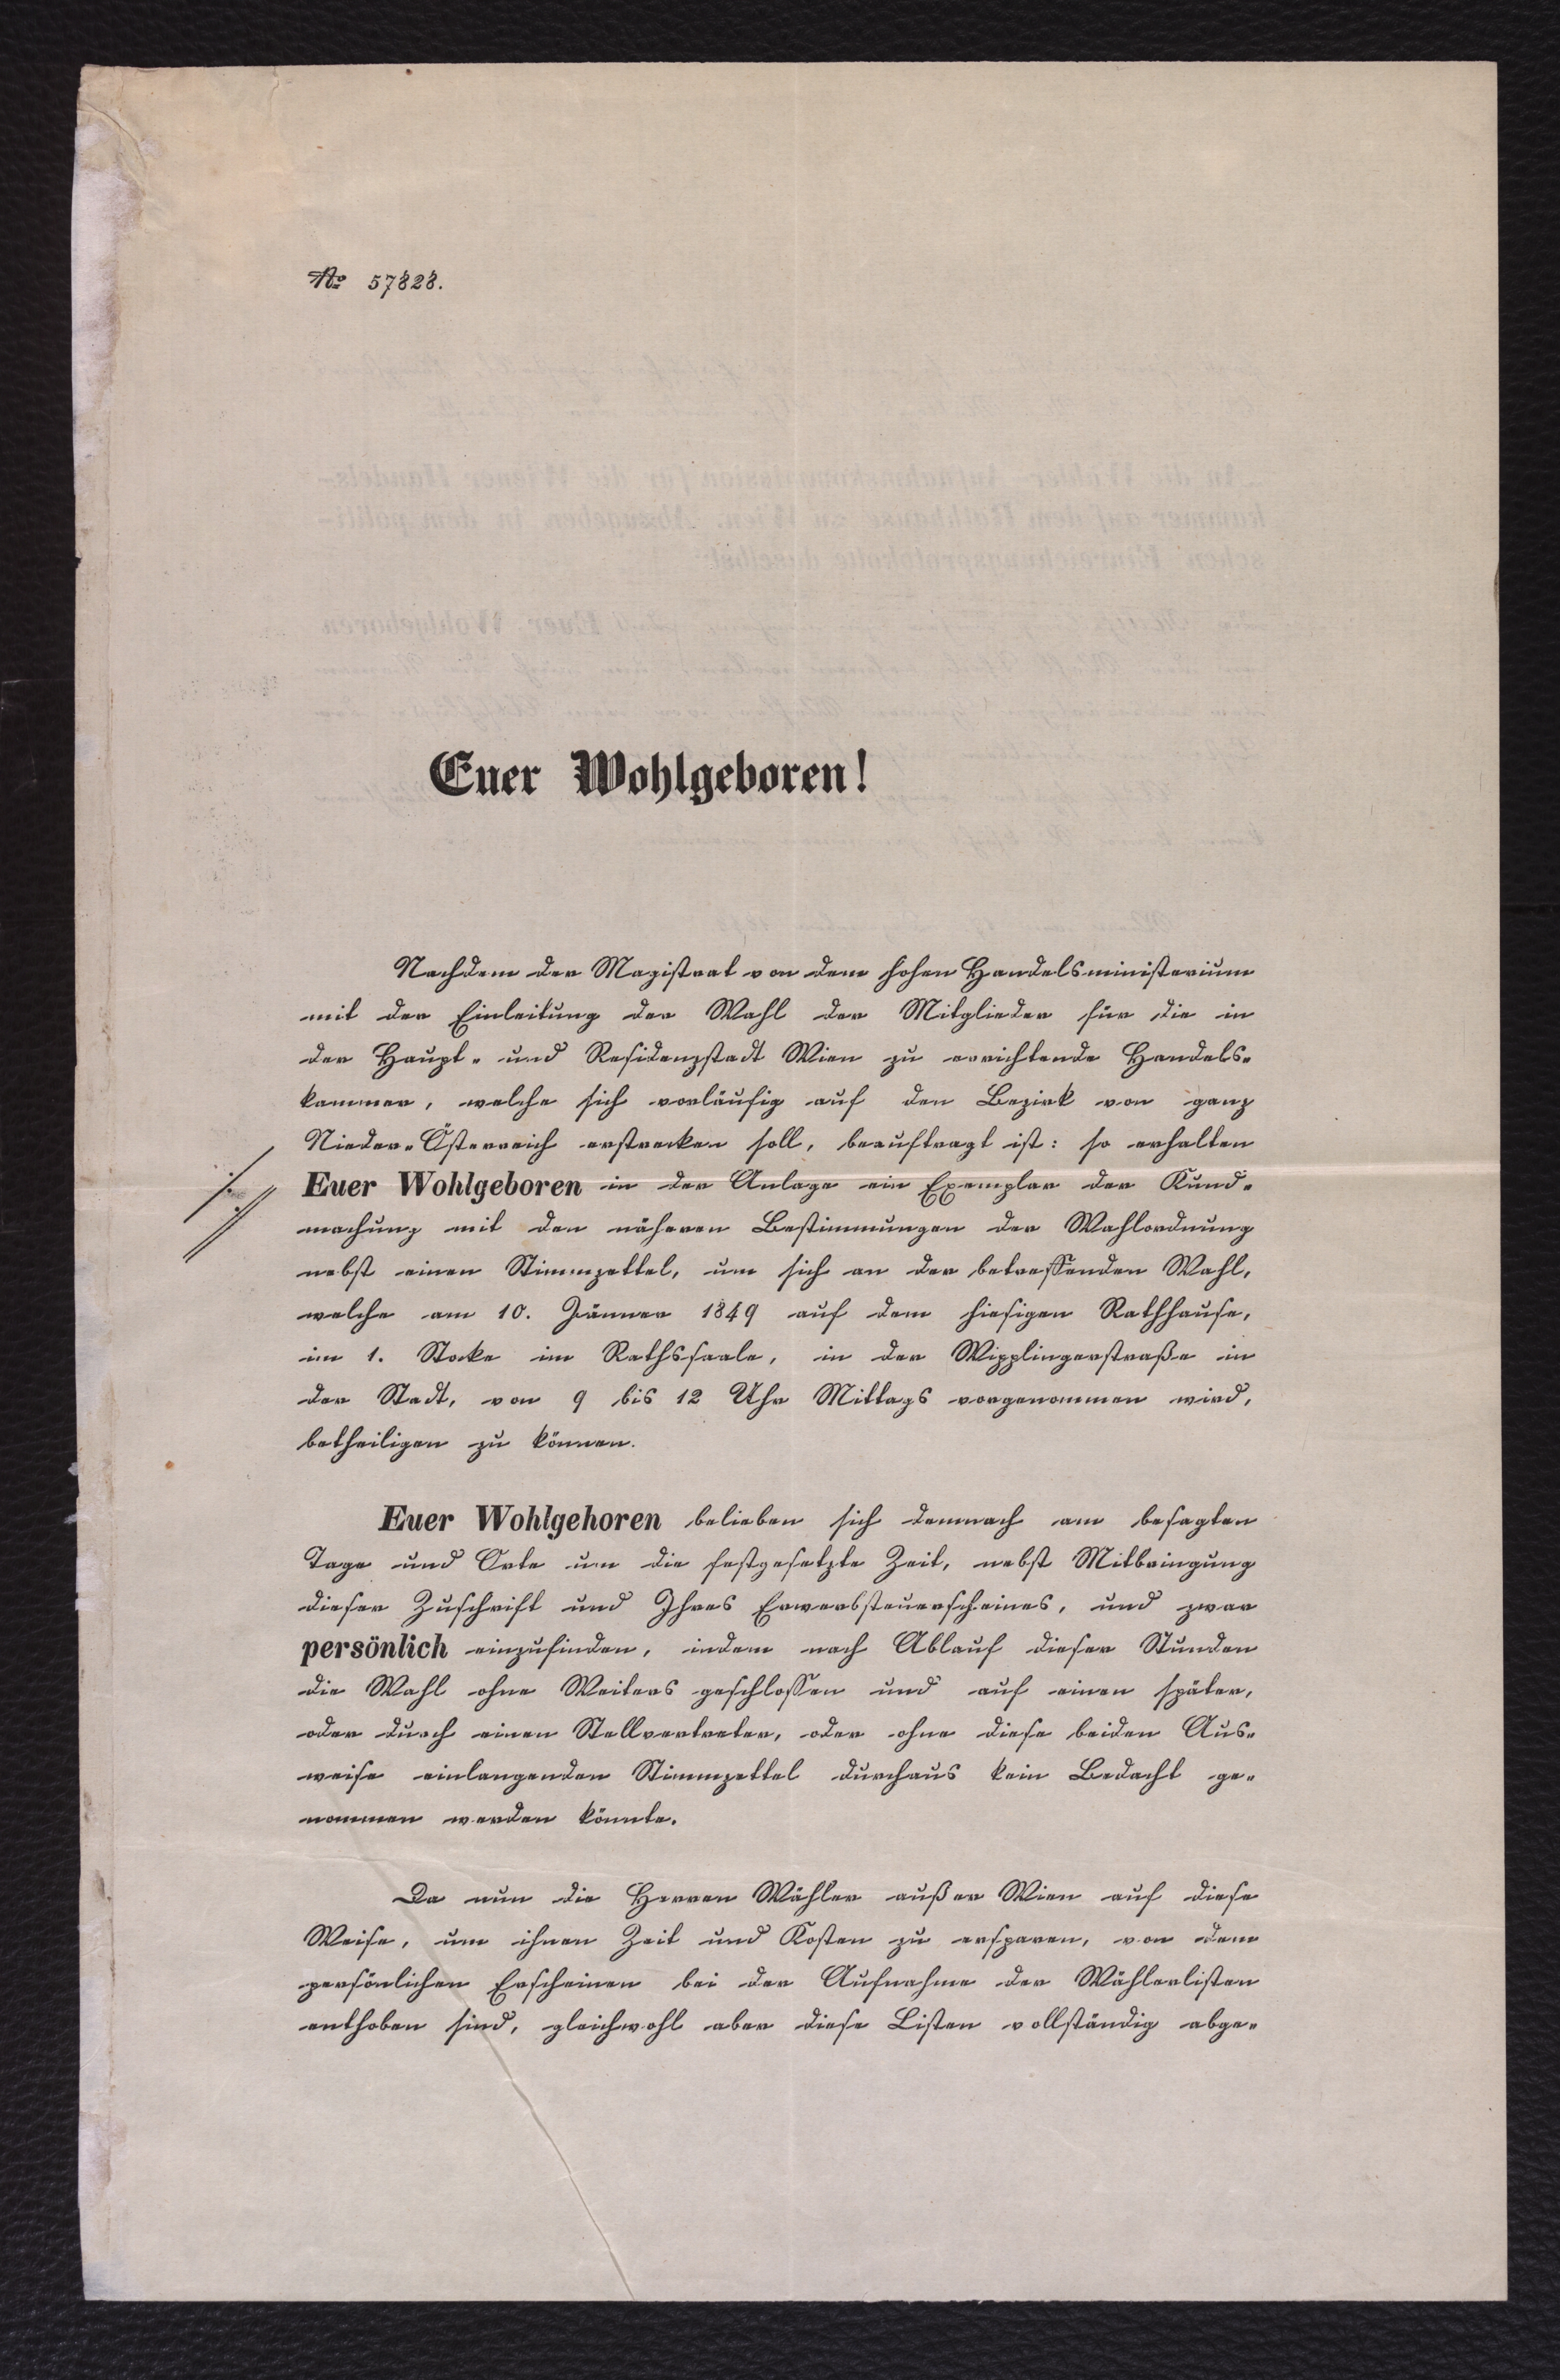 No 57828.
Euer Wohlgeboren!
Nachdem der Magistrat von dem hohen Handelsministerium
mit der Einleitung der Wahl der Mitglieder für die in
der Haupt- und Residenzstadt Wien zu errichtende Handels-
kammer, welche sich vorläufig auf den Bezirk von ganz
Nieder-Österreich erstrecken soll, beauftragt ist: so erhalten
Euer Wohlgeboren in der Anlage ein Exemplar der Kund-
machung mit den näheren Bestimmungen der Wahlordnung
nebst einen Stimmzettel, um sich an der betreffenden Wahl,
welche am 10. Jänner 1849 auf dem hiesigen Rathhause,
im 1. Stocke im Rathssaale, in der Wipplingerstraße in
der Stadt, von 9 bis 12 Uhr Mittags vorgenommen wird,
betheiligen zu können.
Euer Wohlgehoren belieben sich demnach am besagten
Tage und Orte um die festgesetzte Zeit, nebst Mitbringung
dieser Zuschrift und Ihres Erwerbsteuerscheines, und zwar
persönlich einzufinden, indem nach Ablauf dieser Stunden
die Wahl ohne Weiters geschlossen und auf einen später,
oder durch einen Stellvertreter, oder ohne diese beiden Aus-
weise einlangenden Stimmzettel durchaus kein Bedacht ge-
nommen werden könnte.
Da nun die Herren Wähler außer Wien auf diese
Weise, um ihnen Zeit und Kosten zu ersparen, von dem
persönlichen Erscheinen bei der Aufnahme der Wählerlisten
enthoben sind, gleichwohl aber diese Listen vollständig abge-